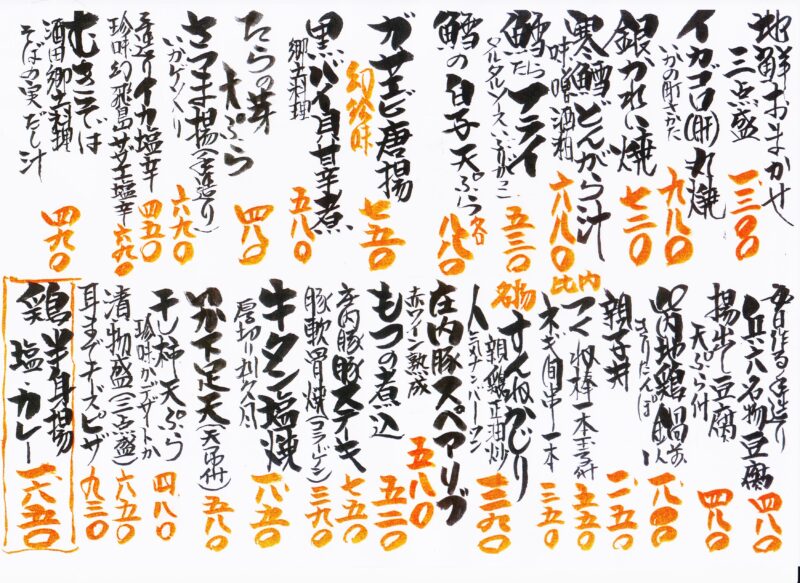 地鮮おまかせ
三点盛
一、三〇〇
イカゴロ(肝)丸焼
いかの町さかた
九八〇
銀かれい焼
七三〇
寒鱈どんがら汁
味噌酒粕
六八〇
鱈フライ
たら
タルタルソース
五三〇
鱈の白子天ぷら
八八〇
ガサエビ唐揚
幻珍味
七五〇
黒バイ貝甘辛煮
郷土料理
五八〇
たらの芽
天ぷら
四八〇
さつま揚(手造り)
六九〇
手造りイカ塩辛
四五〇
珍味幻飛島サザエ塩辛
六九〇
むきそば
酒田郷土料理
そばの実だし汁
四九〇
毎日作る手造り
兵六名物豆腐
四八〇
揚出し豆腐
天ぷら付
四八〇
比内地鶏鍋
きりたんぽ
一、八〇〇
親子丼
比内
つくね棒一本
五五〇
ネギ間串一本
三五〇
名物
すんねかじり
親鶏正油炒
人気ナンバーワン
庄内豚スペアリブ
赤ワイン熟成
五八〇
もつの煮込
五三〇
庄内豚豚ステーキ
七五〇
豚軟骨焼(コラーゲン)
三九〇
牛タン塩焼
厚切り
八五〇
いか下足天(天汁付)
五八〇
干し柿天ぷら
珍味かデザートか
四八〇
漬物盛(三点盛)
六五〇
耳までチーズピザ
九三〇
鶏半身揚
塩・カレー
一、六五〇